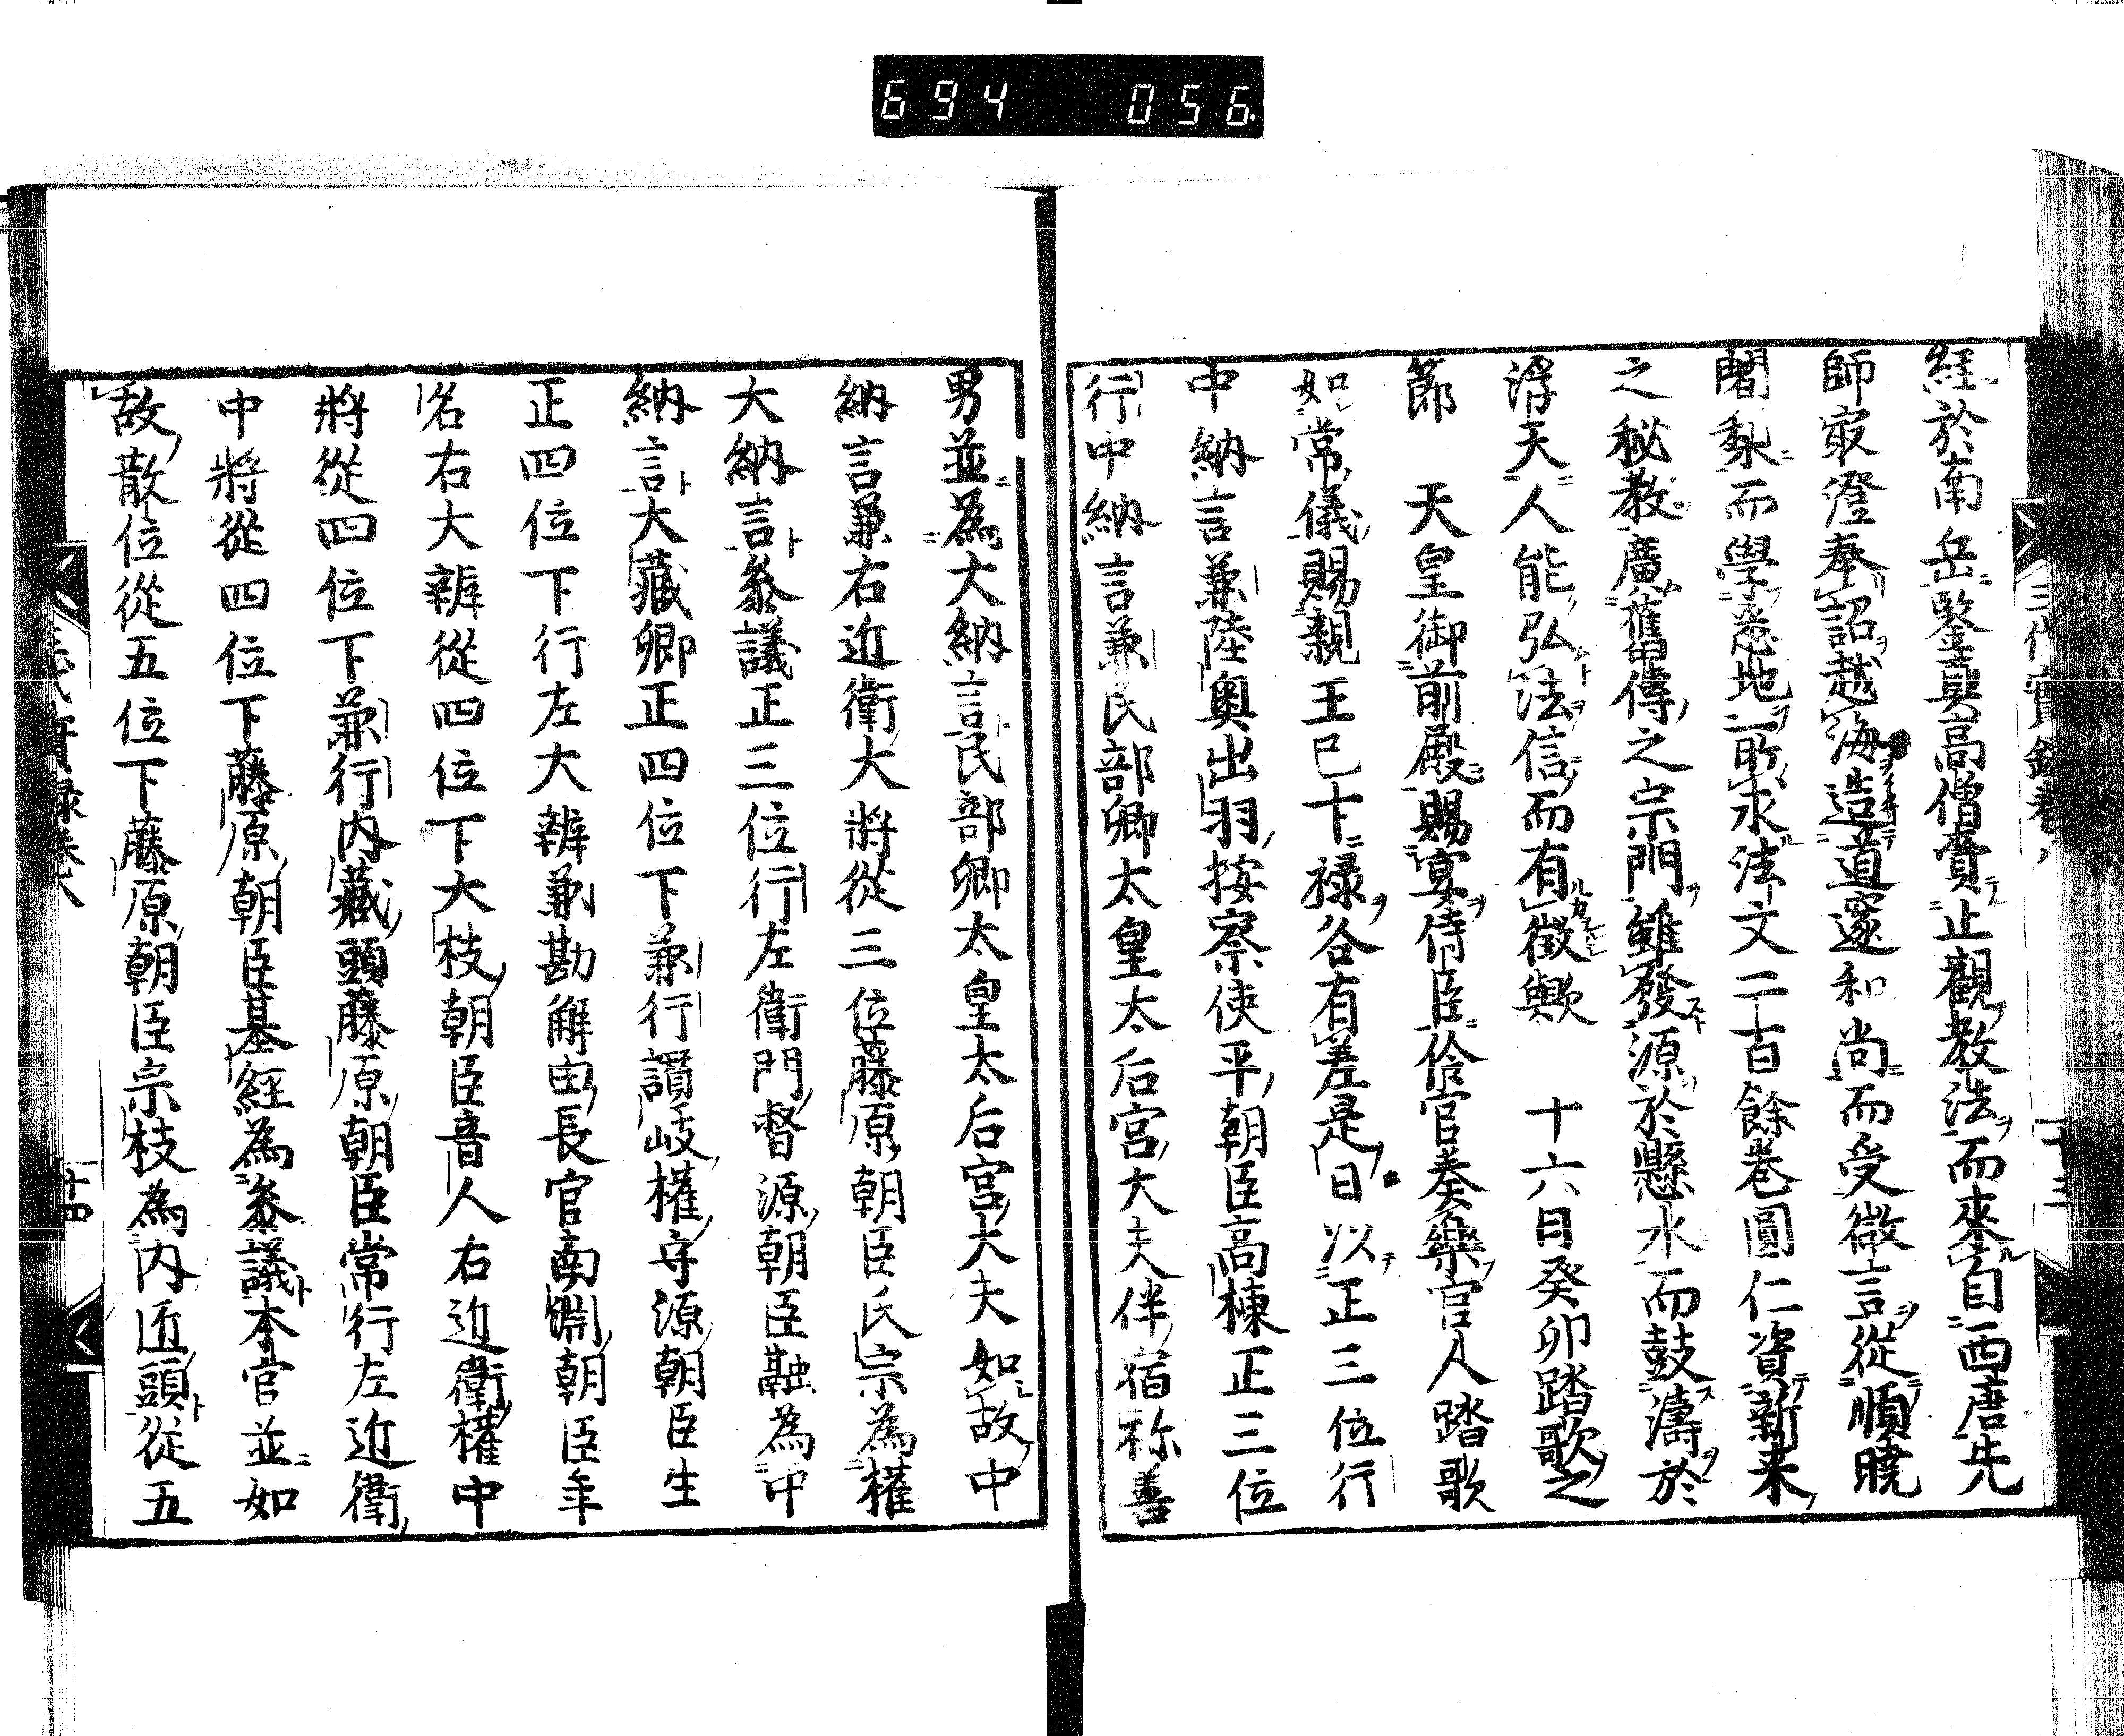 694 056
經於南岳鑒真高僧賷止觀教法而來自西唐先
師最澄奉詔越海造道邃和尚而受微言從順曉
闍梨而學悉地所求法文二百餘卷圓仁資新来
之秘教廣舊傳之宗門雖發源於懸水而鼓濤於
浮天人能弘法信而有徵歟 十六日癸卯踏歌之
節 天皇御前殿賜宴侍臣伶官奏樂官人踏歌
如常儀賜親王已下祿各有差是日以正三位行
中納言兼陸奧出羽按察使平朝臣高棟正三位
行中納言兼民部卿太皇太后宮大夫伴宿祢善
男並為大納言民部卿太皇太后宮大夫如故中
納言兼右近衛大將從三位藤原朝臣氏宗為權
大納言叅議正三位行左衛門督源朝臣融為中
納言大藏卿正四位下兼行讃岐權守源朝臣生
正四位下行左大辨兼勘解由長官南淵朝臣年
名右大辨從四位下大枝朝臣音人右近衛權中
將從四位下兼行内藏頭藤原朝臣常行左近衛
中將從四位下藤原朝臣基經為叅議本官並如
故散位從五位下藤原朝臣宗枝為内匠頭從五
十四